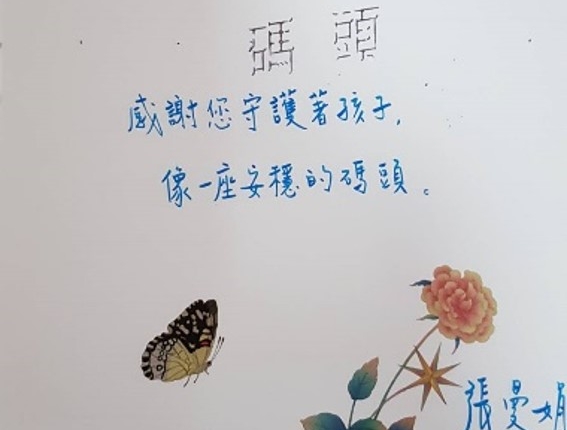 碼頭
感謝您守護著孩子，
像一座安穩的碼頭。
張曼娟